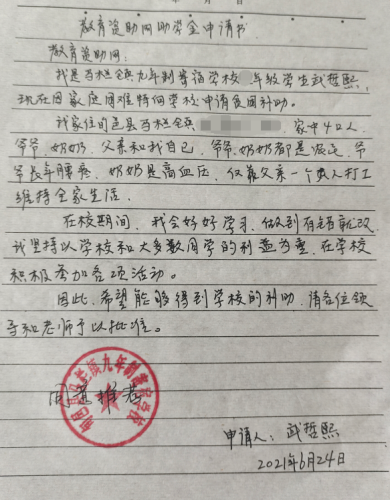 教育资助网助学金申请书
教育资助网:
我是马栏镇九年制寄宿学校 年级学生武哲熙,
现在因家庭困难特向学校申请贫困补助。
我家住旬邑县马栏镇 家中4口人,
爷爷、奶奶、父亲和我自己,爷爷、奶奶都是 爷
爷长年腰疼,奶奶是高血压,仅靠父亲一个人打工
维持全家生活。
在校期间,我会好好学习,做到有错就改,
我坚持以学校和大多数同学的利益为重,在学校
积极参加各项活动。
因此,希望能够得到学校的补助,请各位领
导和老师予以批准。
同意推荐
旬邑县马栏镇九年制寄宿学校
申请人:武哲熙
2021年6月24日